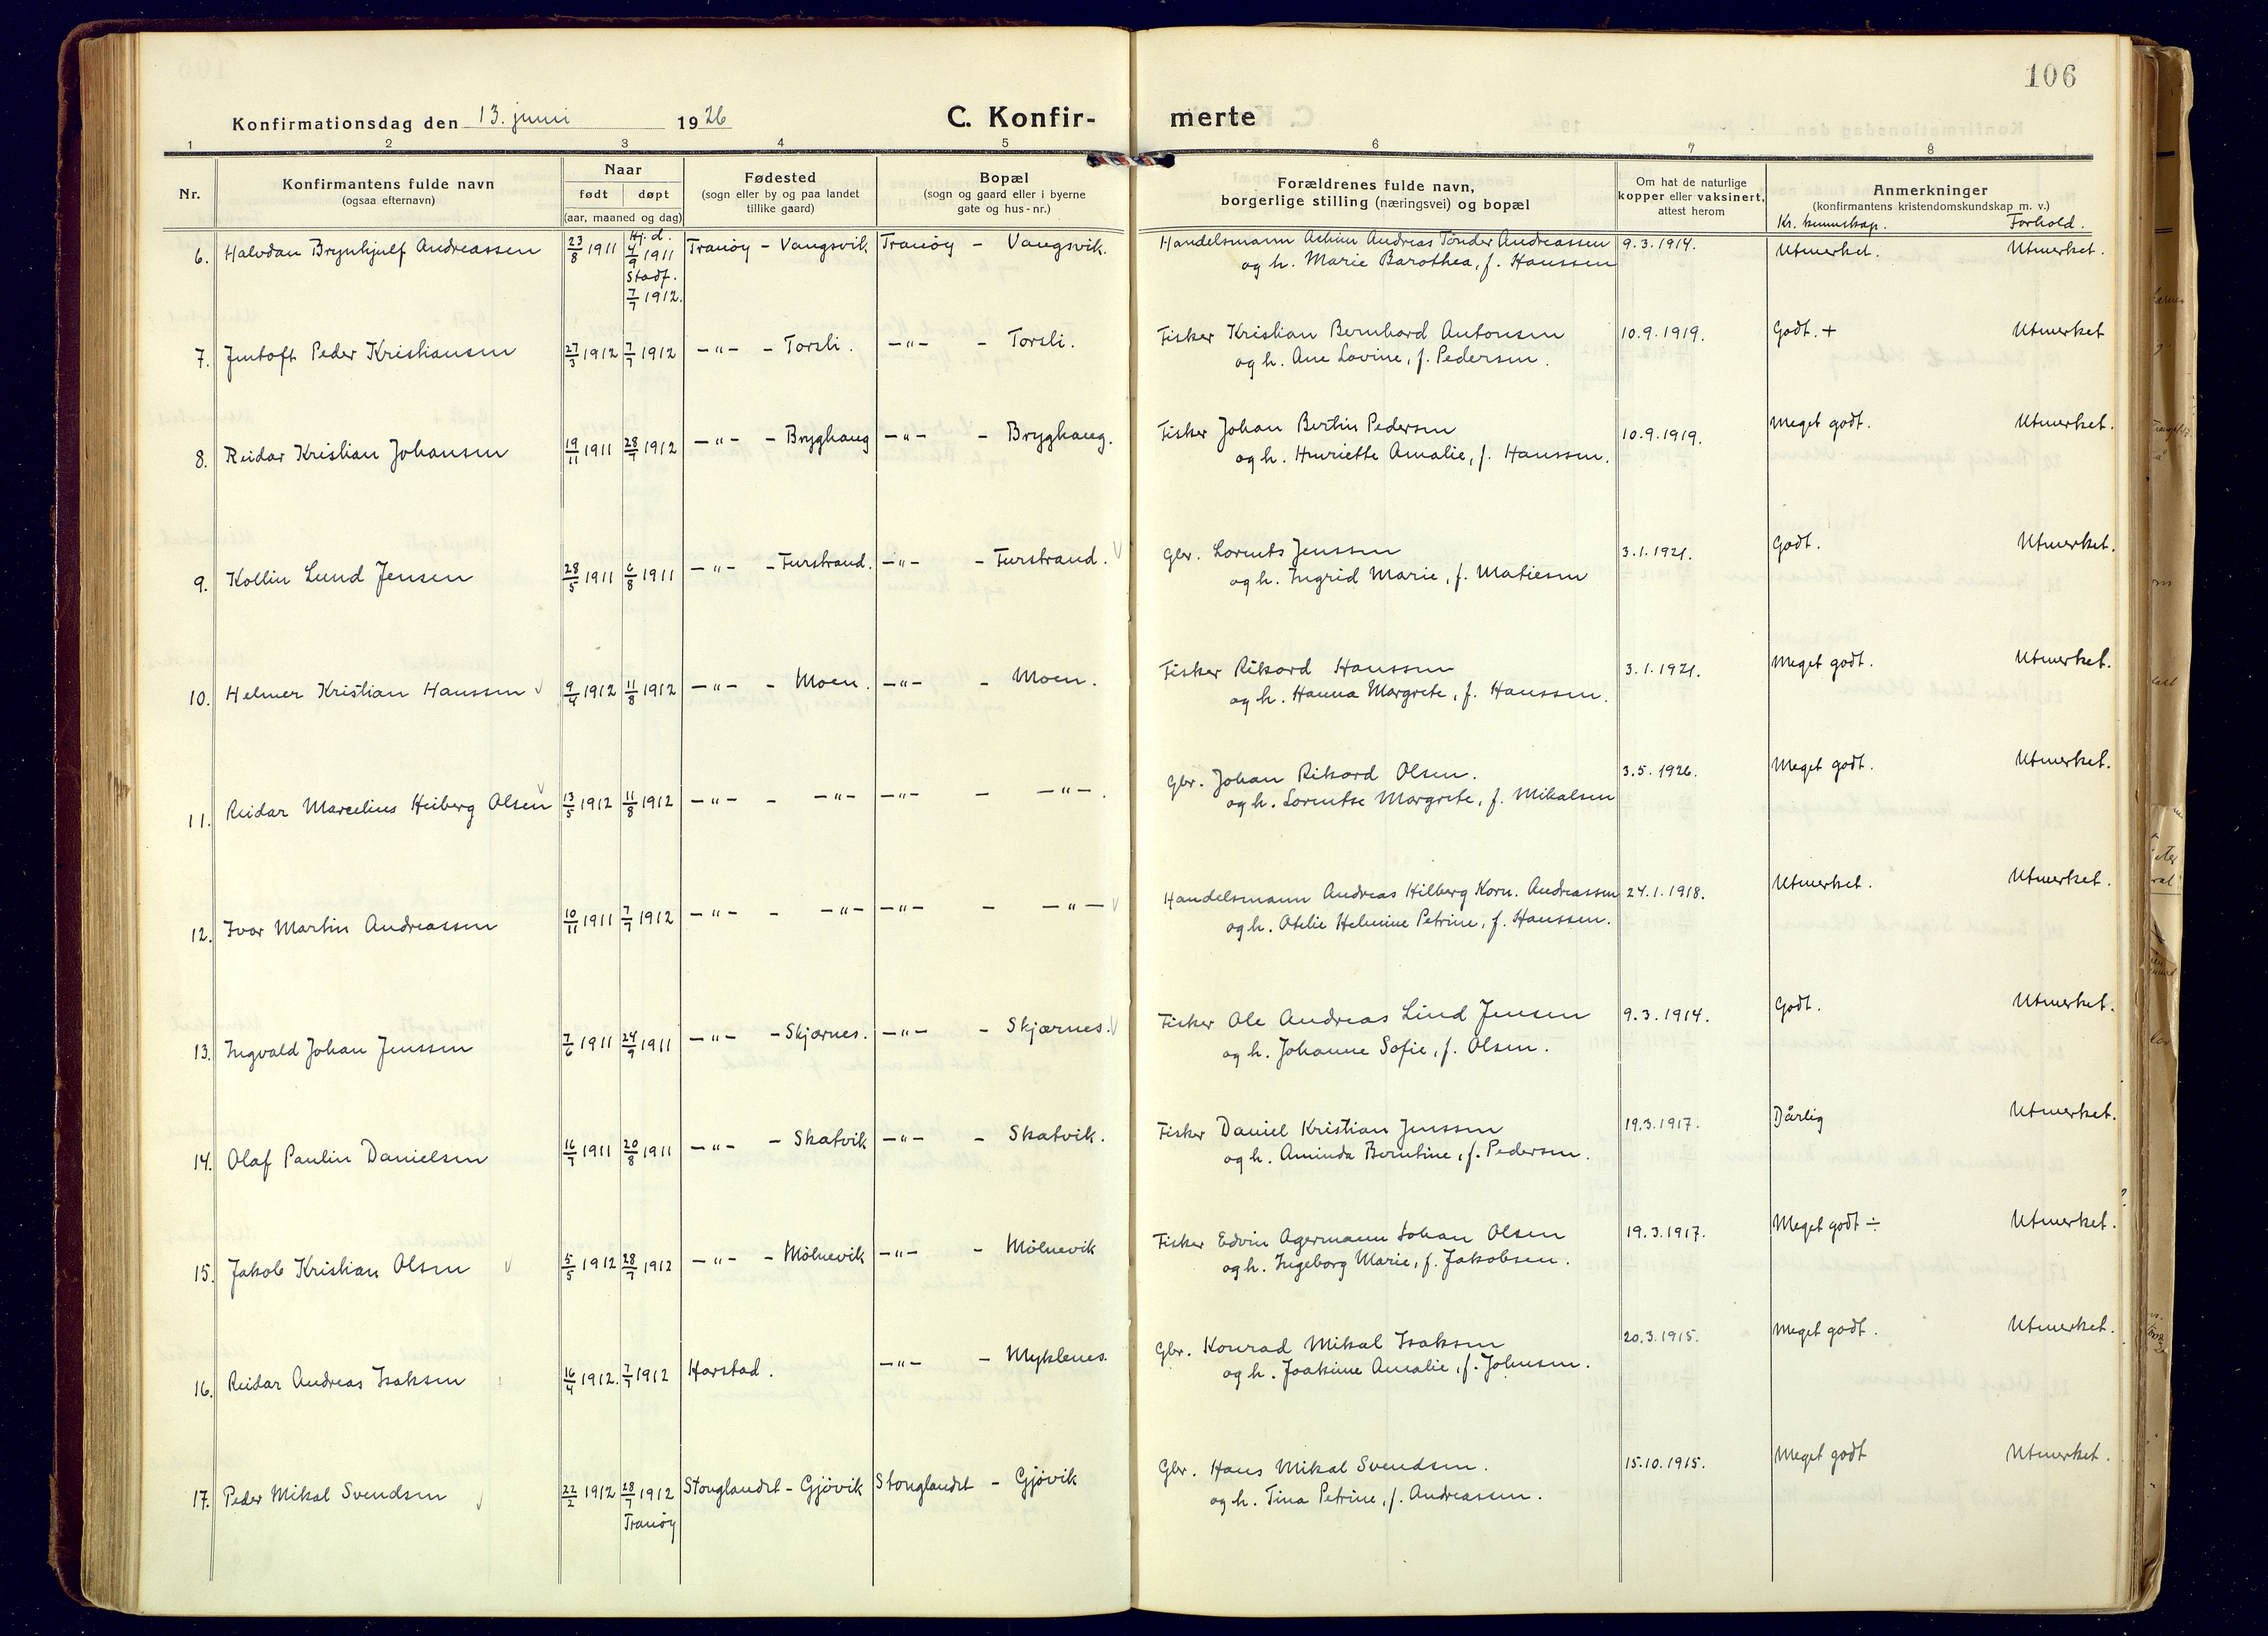 106
Konfirmationsdag den 13. juni 1926 C. Konfirmerte
1 2 3 4 5 6 7 8
Nr. Konfirmantens fulde navn (ogsaa efternavn) Naar født døpt (aar, maaned og dag) Fødested (sogn eller by og paa landet tillike gaard) Bopæl (sogn og gaard eller i byerne gate og hus-nr.) Forældrenes fulde navn, borgerlige stilling (næringsvei) og bopæl Om hat de naturlige kopper eller vaksinert, attest herom Anmerkninger (konfirmantens kristendomskundskap m. v.)
Kr. kunnskap. Forhold.
6. Halvdan Brynhjulf Andreassen 23/8 1911 Hj.d. 4/9 1911 Stadf. 7/7 1912. Tranöy - Vangsvik Tranöy - Vangsvik. Handelsmann Achim Andreas Tönder Andreassen 9.3.1914. Utmerket. Utmerket.
og h. Marie Barothea, f. Hanssen
7. Jentoft Peder Kristiansen 27/3 1912 7/7 1912 -"- - Torsli. -"- - Torsli. Fisker Kristian Bernhard Antonsen 10.9.1919. Godt. + Utmerket
og h. Ane Lovine, f. Pedersen.
8. Reidar Kristian Johansen 19/11 1911 28/7 1912 -"- - Bryghaug -"- - Bryghaug. Fisker Johan Bertin Pedersen 10.9.1919. Meget godt. Utmerket.
og h. Henriette Amalie, f. Hanssen.
9. Kollin Lund Jensen 28/5 1911 6/8 1911 -"- - Furstrand. -"- - Furstrand. Gbr. Lorents Jenssen 3.1.1921. Godt. Utmerket.
og h. Ingrid Marie, f. Matiesen
10. Helmer Kristian Hanssen 9/4 1912 11/8 1912 -"- - Moen. -"- - Moen. Fisker Rikard Hanssen 3.1.1921. Meget godt. Utmerket.
og h. Hanna Margrete, f. Hanssen.
11. Reidar Marcelius Heiberg Olsen 13/5 1912 11/8 1912 -"- - -"- -"- - -"-. Gbr. Johan Rikard Olsen. 3.5.1926. Meget godt. Utmerket.
og h. Lorentse Margrete, f. Mikalsen
12. Ivar Martin Andreassen 10/11 1911 7/7 1912 -"- - -"- -"- - -"- Handelsmann Andreas Hilberg Korn. Andreassen 24.1.1918. Utmerket. Utmerket.
og h. Otelie Helmine Petrine, f. Hanssen.
13. Ingvald Johan Jenssen 7/6 1911 24/9 1911 -"- - Skjærnes. -"- - Skjærnes. Fisker Ole Andreas Lind Jensen 9.3.1914. Godt. Utmerket.
og h. Johanne Sofie, f. Olsen.
14. Olaf Paulin Danielsen 16/7 1911 20/8 1911 -"- - Skatvik -"- - Skatvik. Fisker Daniel Kristian Jenssen 19.3.1917. Dårlig Utmerket.
og h. Aminda Berntine, f. Pedersen.
15. Jakob Kristian Olsen 5/5 1912 28/7 1912 -"- - Mölnevik -"- - Mölnevik Fisker Edvin Agermann Johan Olsen 19.3.1917. Meget godt ÷ Utmerket.
og h. Ingeborg Marie, f. Jakobsen.
16. Reidar Andreas Isaksen 16/4 1912. 7/7 1912 Harstad. -"- - Myklenes. Gbr. Konrad Mikal Isaksen 20.3.1915. Meget godt. Utmerket.
og h. Joakime Amalie, f. Johnsen.
17. Peder Mikal Svendsen 22/2 1912 28/7 1912 Tranöy Stonglandet - Gjövik Stonglandet - Gjövik Gbr. Hans Mikal Svendsen. 15.10.1915. Meget godt Utmerket.
og h. Tina Petrine, f. Andreassen.